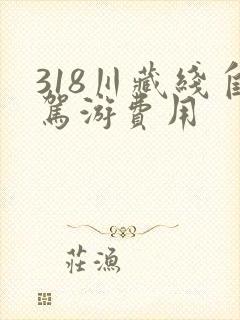 318川藏綫自
駕游費用
莊漁